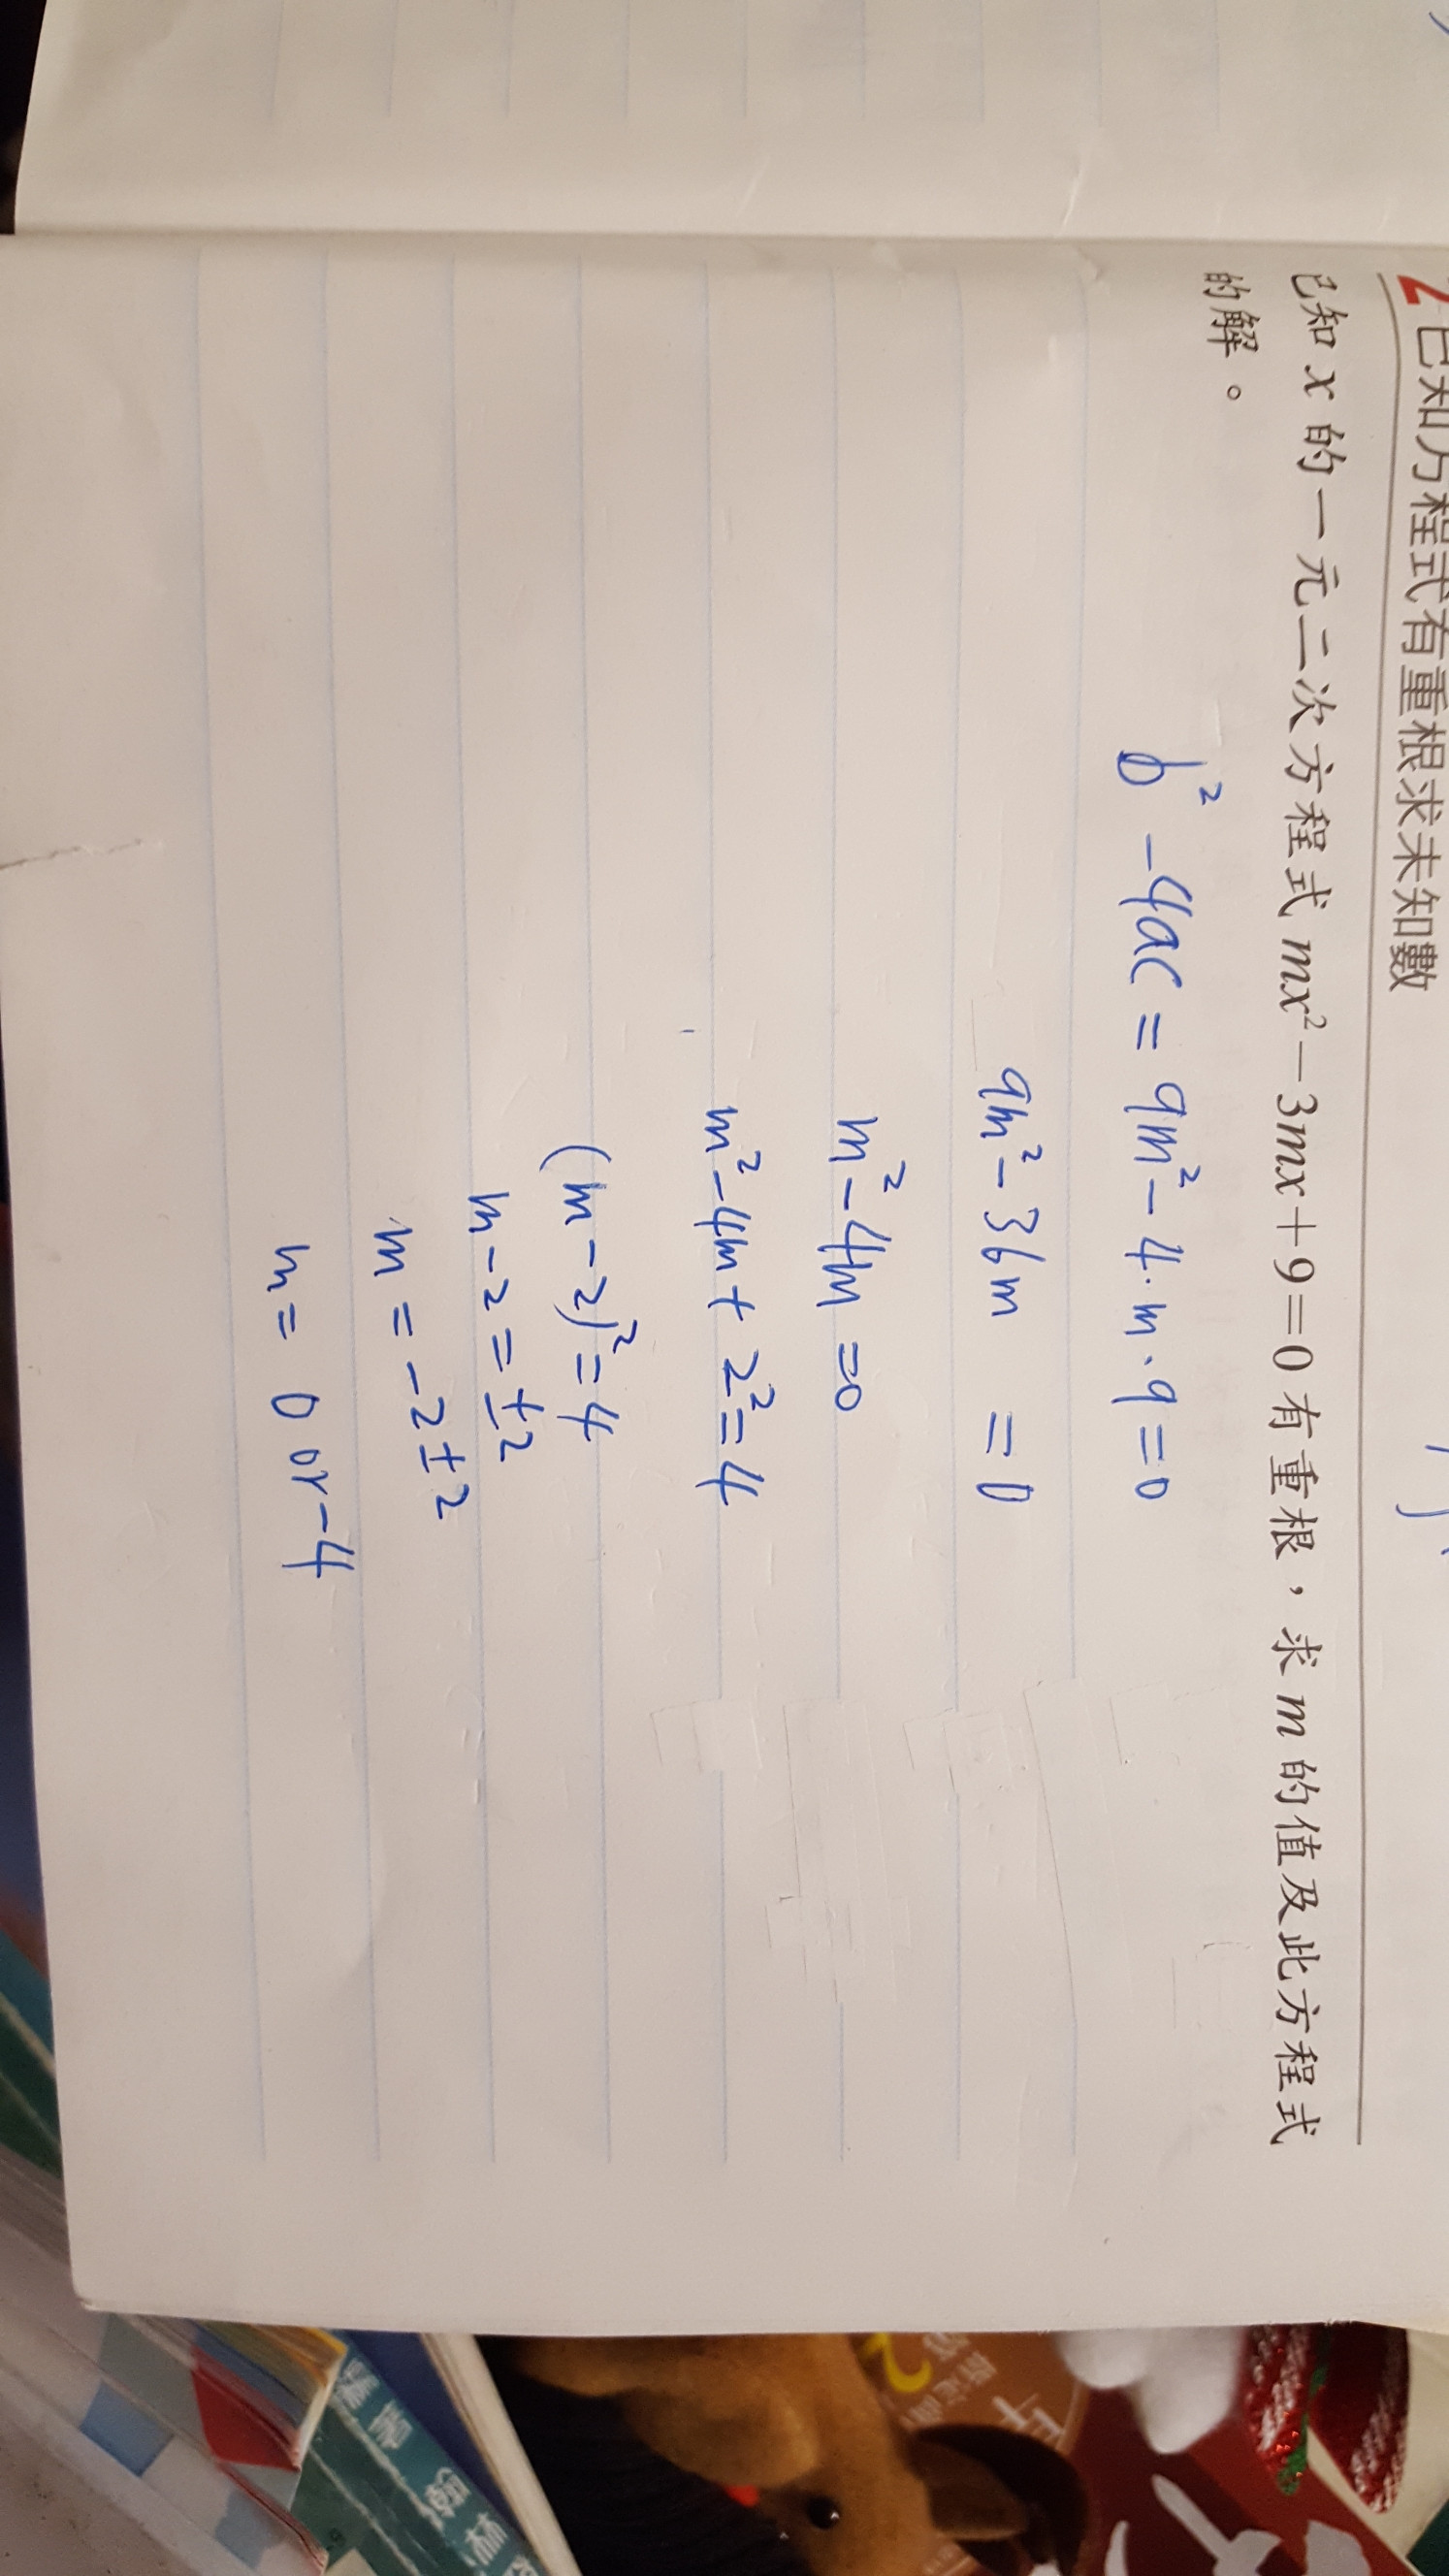 2 已知方程式有重根求未知數
已知 x 的一元二次方程式 mx²－3mx＋9＝0 有重根，求 m 的值及此方程式
的解。
b² -4ac = 9m² - 4·m·9 = 0
9m² - 36m = 0
m² - 4m = 0
m² - 4m + 2² = 4
(m - 2)² = 4
m - 2 = ±2
m = -2 ± 2
m = 0 or -4